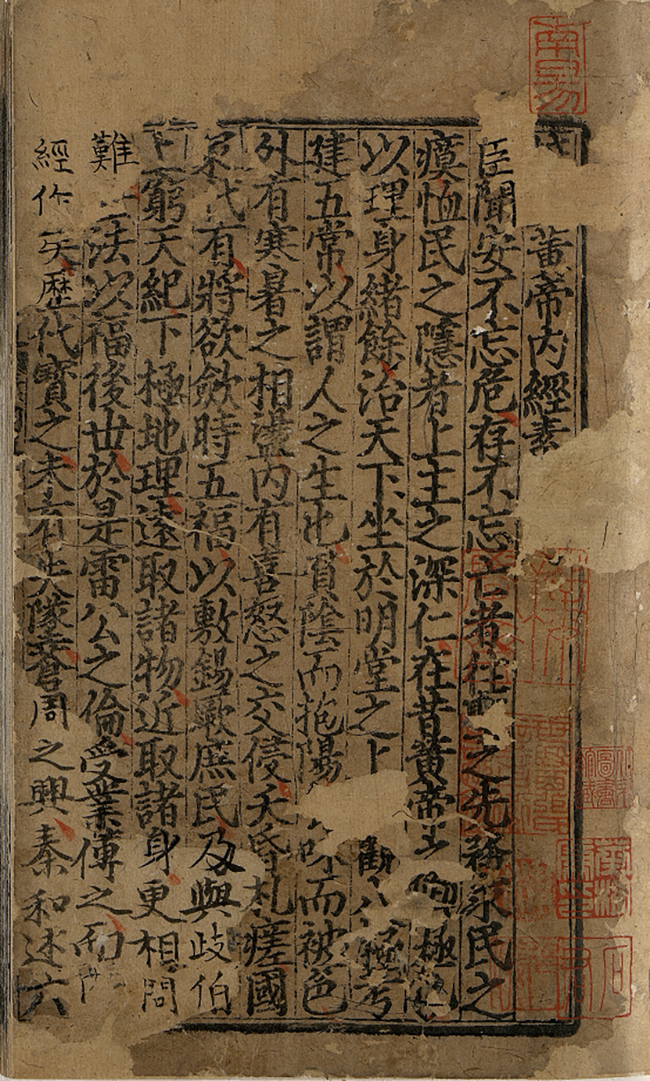 黃帝內經素
臣聞安不忘危存不忘亡者往之先務求民之
瘼恤民之隱者上主之深仁在昔黃帝極
以理身緒餘治天下坐於明堂之上觀八極考
建五常以謂人之生也負陰而抱陽味而被色
外有寒暑之相盪內有喜怒之交侵夭昏札瘥國
家代有將欲斂時五福以敷錫厥庶民及與歧伯
上窮天紀下極地理遠取諸物近取諸身更相問
難法以福後世於是雷公之倫受業傳之而
經作矣歷代寶之未有失墜蒼周之興秦和述六